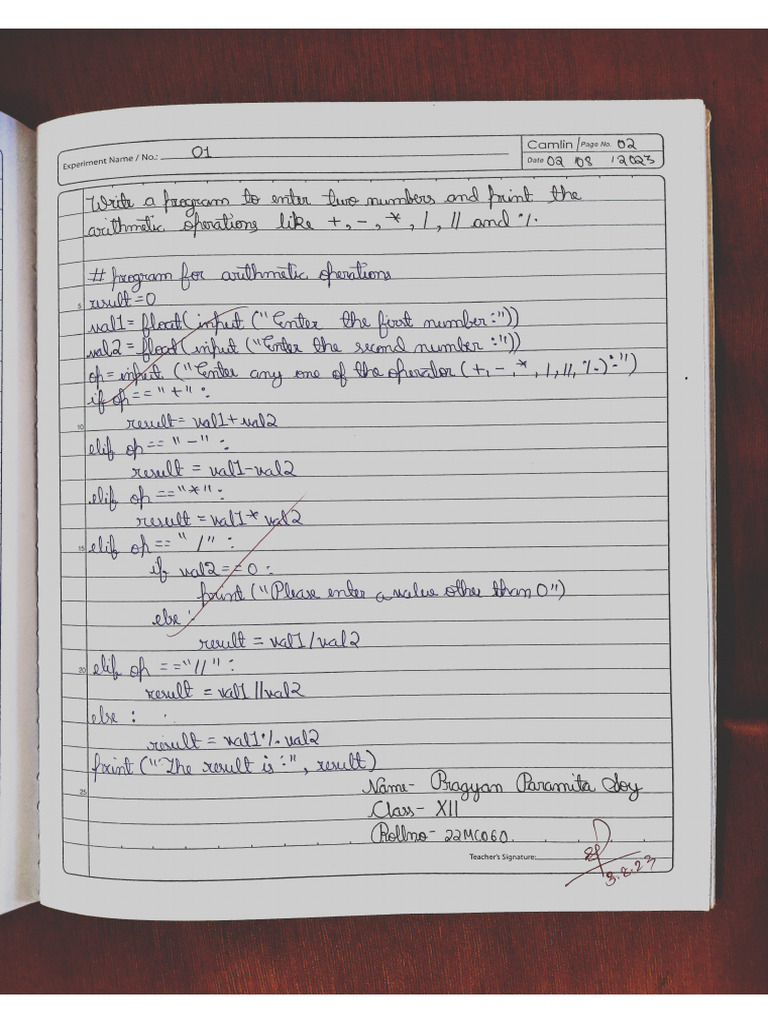 Experiment Name / No.: 01
Camlin Page No. 02
Date 02 08 2023
Write a program to enter two numbers and print the
arithmetic operations like +, -, *, /, // and %.
# program for arithmetic operations
5 result=0
val1 = float(input ("Enter the first number:"))
val2 = float(input ("Enter the second number :"))
op=input ("Enter any one of the operator (+, -, *, /, //, %):")
if op=="+" :
10 result= val1+val2
elif op== "-" :
result = val1-val2
elif op=="*" :
result = val1* val2
15 elif op== "/" :
if val2==0:
print ("Please enter a value other than 0")
else :
result = val1/val2
20 elif op =="//" :
result = val1//val2
else :
result = val1%val2
print ("The result is :", result)
25 Name- Pragyan Paramita Soy
Class- XII
Rollno- 22MC060
Teacher's Signature:
3.8.23